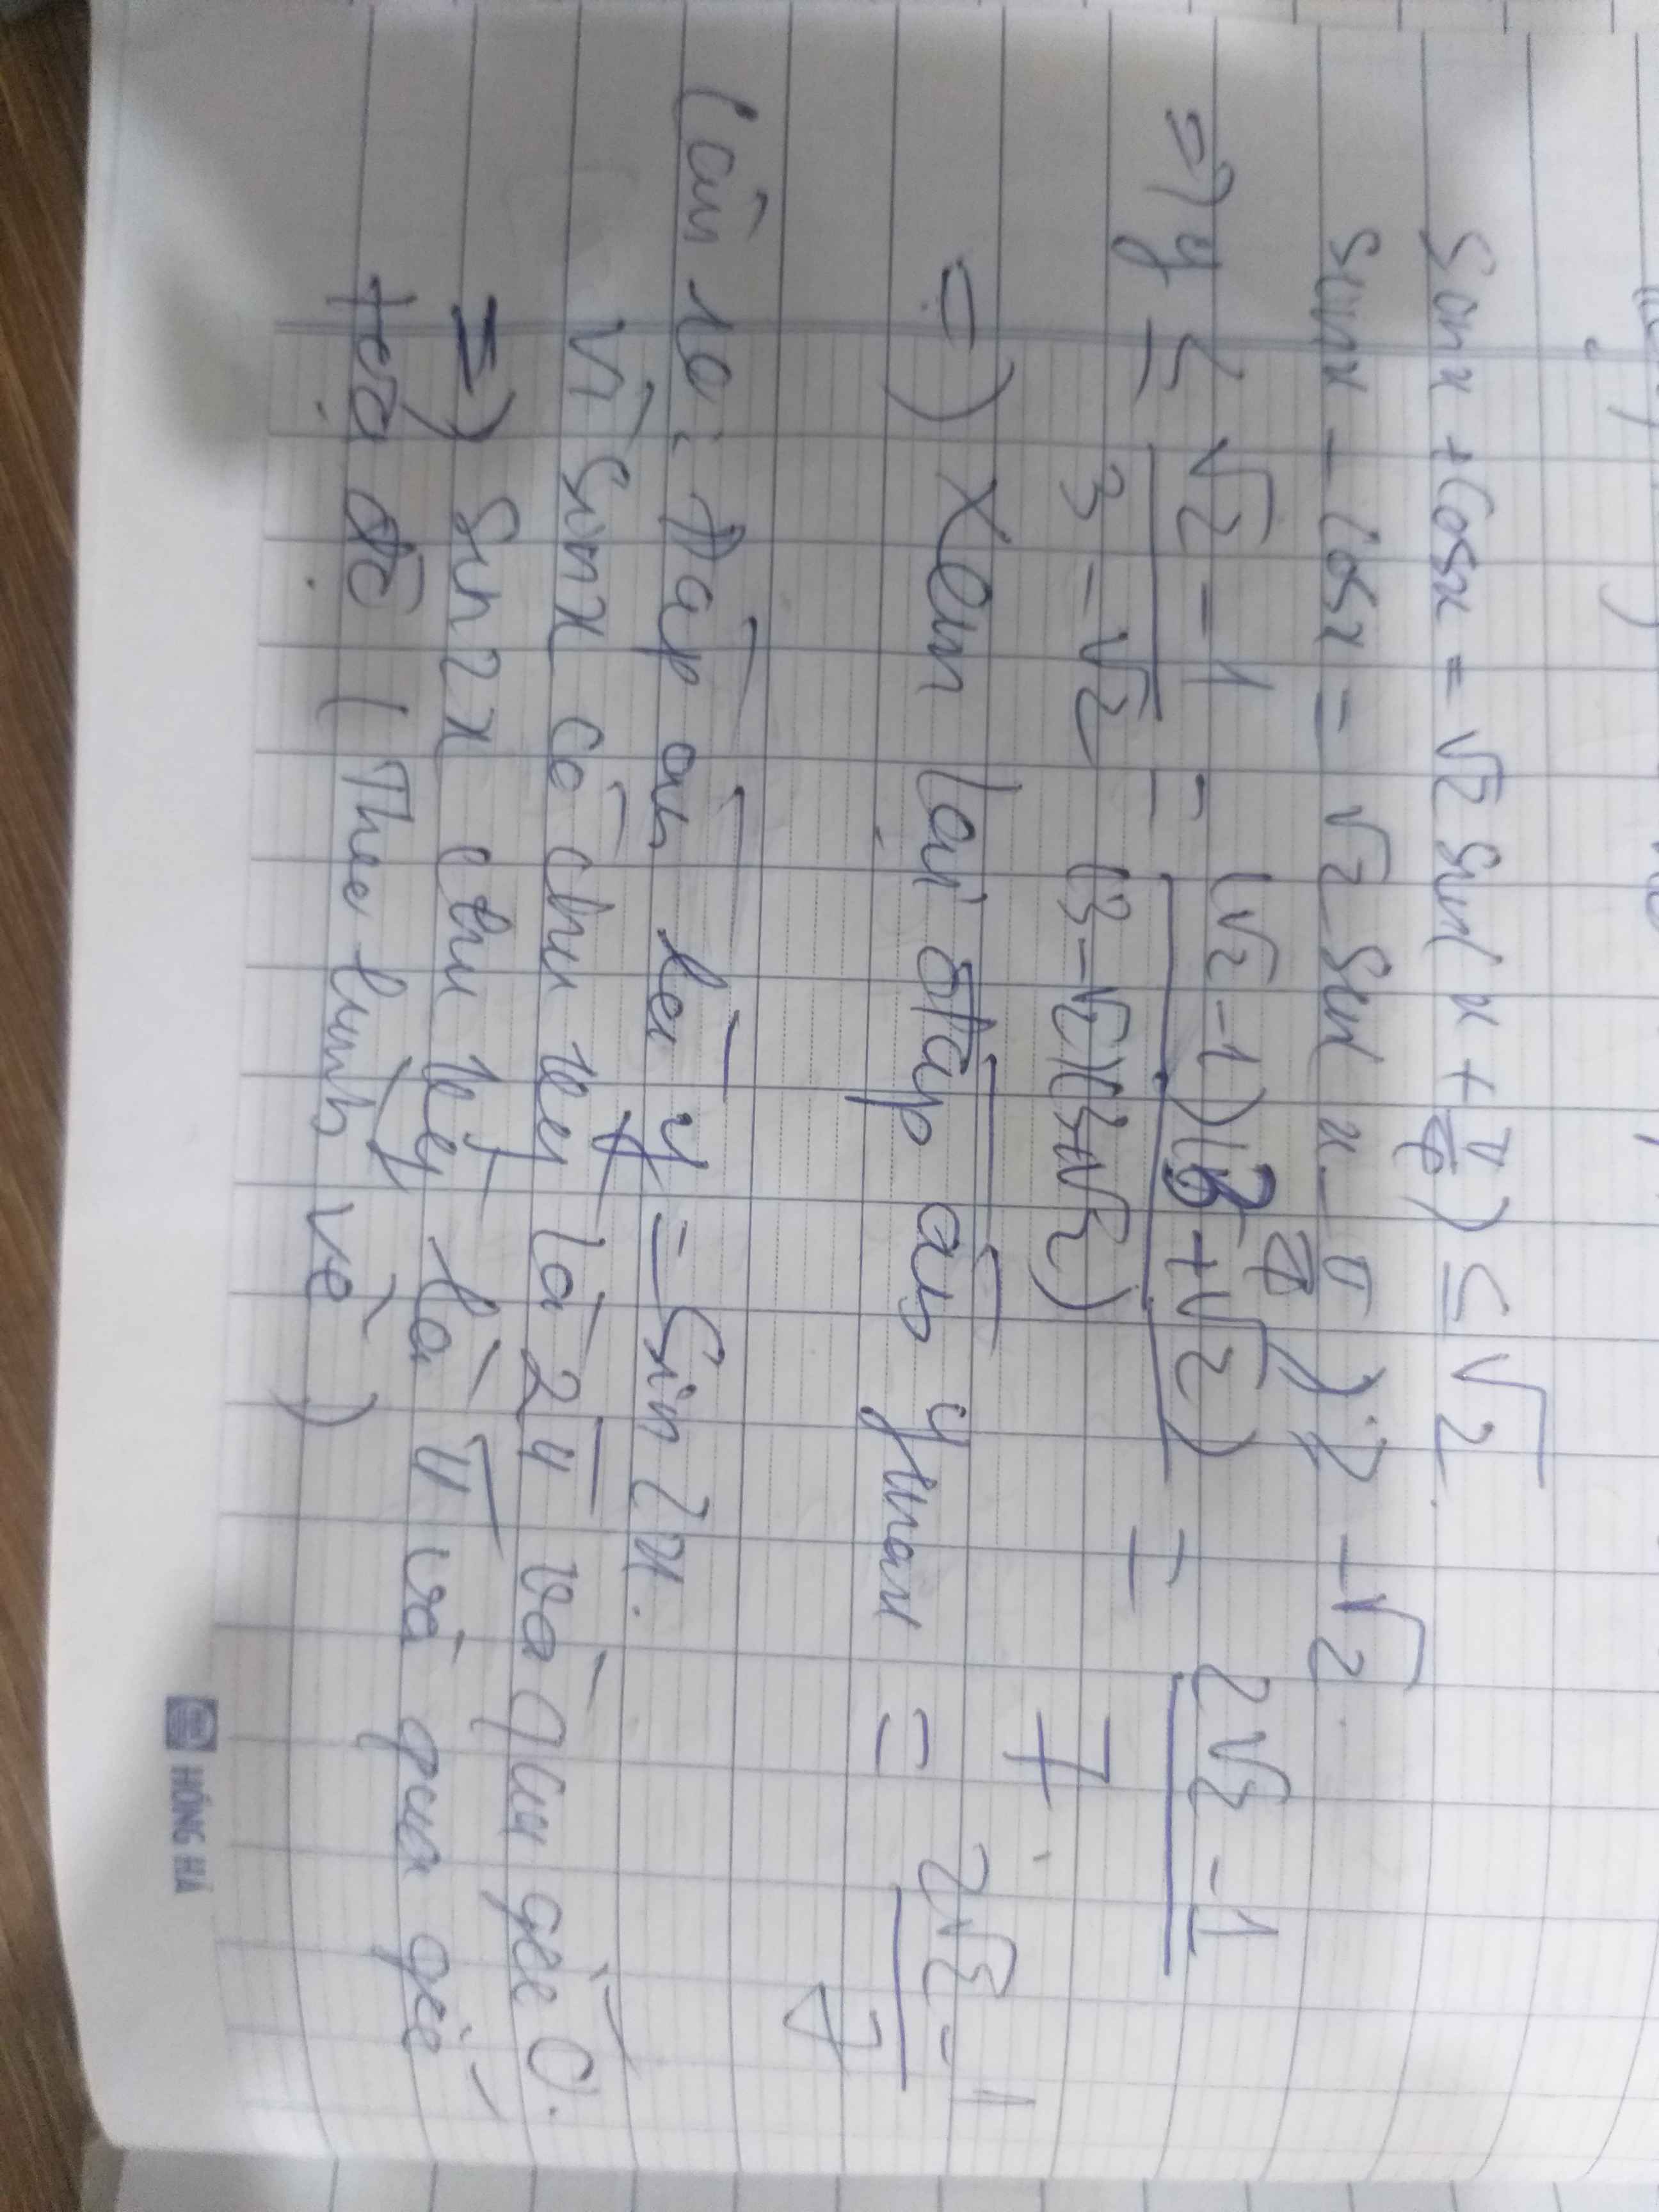 Sinx + Cosx = √2 Sin(x + π/4) ≤ √2.
Sinx - Cosx = √2 Sin(x - π/4) ≥ -√2.
=> y ≤ (√2 - 1)/(3 - √2) = (√2 - 1)(3 + √2)/(3 - √2)(3 + √2) = (2√2 - 1)/7.
=) Xem lại đáp án ymax = (2√2 - 1)/7
Câu 10: Đáp án là y = Sin2x.
Vì Sinx có chu kỳ là 2π và qua gốc O.
=) Sin2x chu kỳ là π và qua gốc
tọa độ (Theo hình vẽ)
HỒNG HÀ